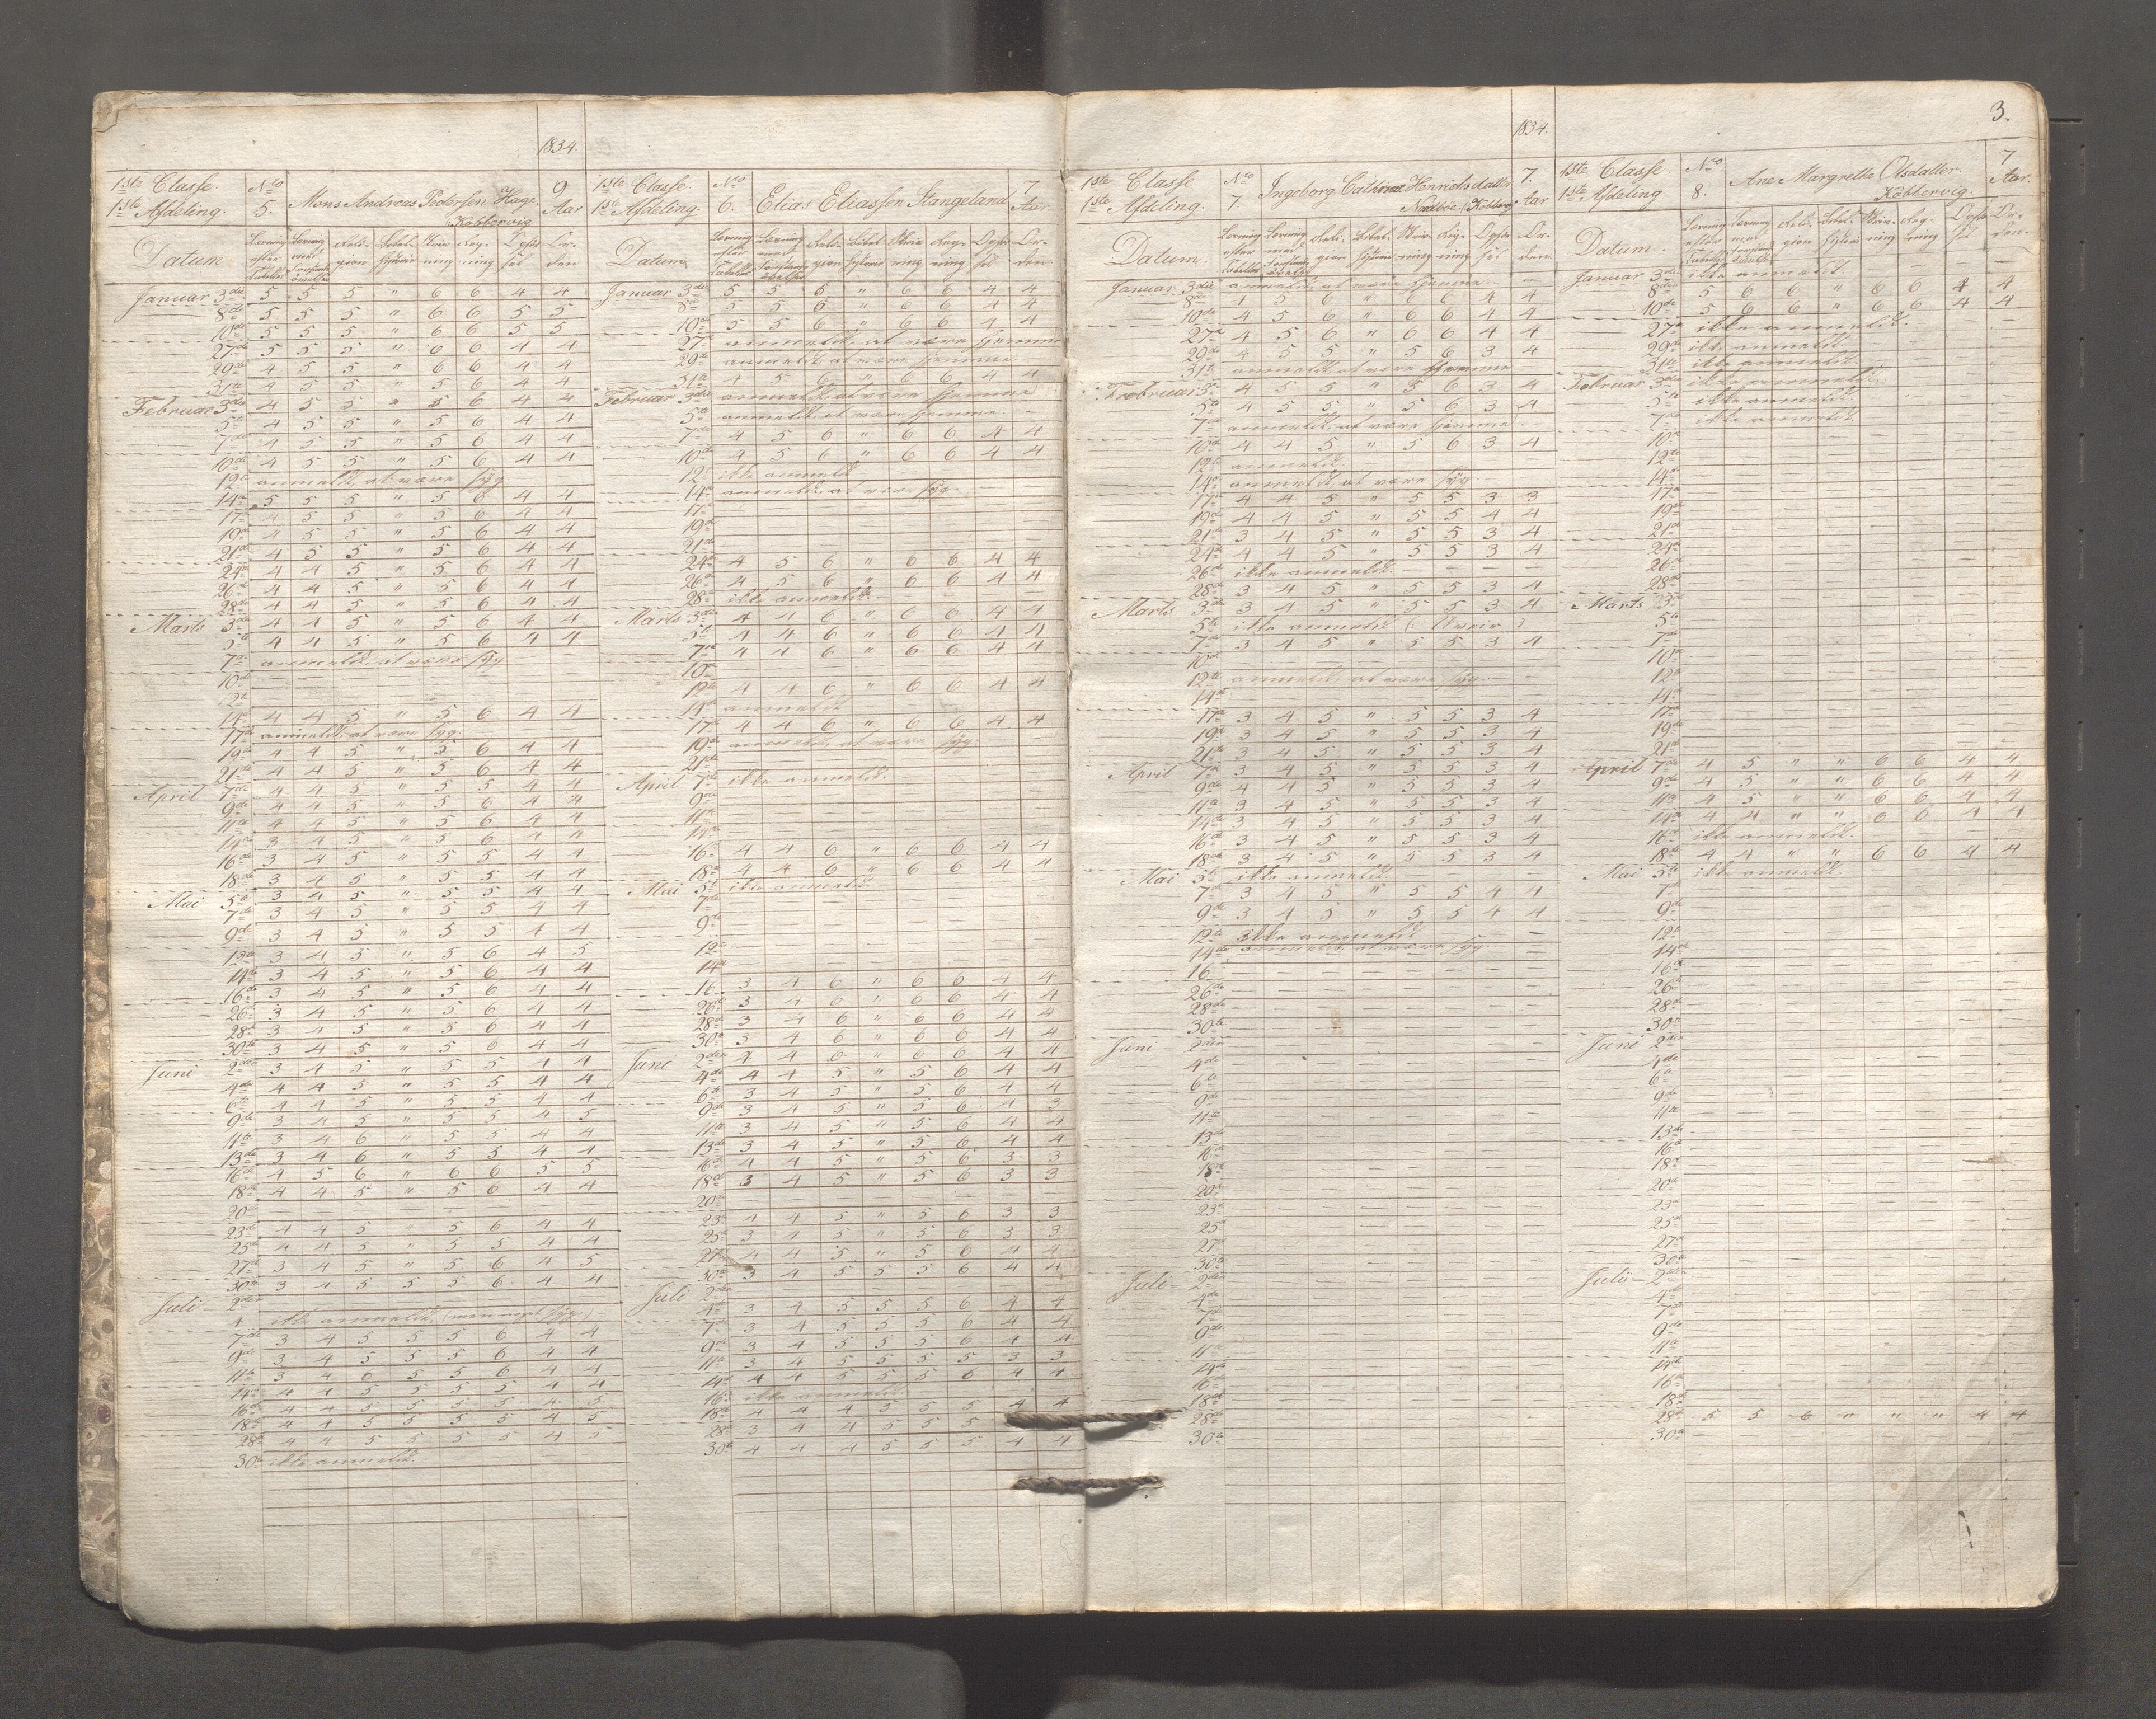 1834.
1ste Classe.
1ste Afdeling.
No 5.
Mons Andreas Pedersen Hage
Kobbervig
9 Aar
Datum
Læsning efter Tabeller
Læsning med
Reli- gion
Bibel-
Skriv- ning
Reg- ning
Opfør- sel
Or- den
Januar 3die 5 5 5 " 6 6 4 4
8de 5 5 5 " 6 6 5 5
10de 5 5 5 " 6 6 5 5
27de 5 5 5 " 6 6 4 4
29de 4 5 5 " 6 6 4 4
31te 4 5 5 " 5 6 4 4
Februar 3die 4 5 5 " 5 6 4 4
5te 4 5 5 " 5 6 4 4
7de 4 5 5 " 5 6 4 4
10de 4 5 5 " 5 6 4 4
12te anmeldt at være syg
14de 5 5 5 " 5 6 4 4
17de 4 5 5 " 5 6 4 4
19de 4 5 5 " 5 6 4 4
21de 4 5 5 " 5 6 4 4
24de 4 4 5 " 5 6 4 4
26de 4 4 5 " 5 6 4 4
28de 4 4 5 " 5 6 4 4
Marts 3die 4 4 5 " 5 6 4 4
5te 4 4 5 " 5 6 4 4
7de anmeldt at være syg
10de
12te
14de 4 4 5 " 5 6 4 4
17de anmeldt at være syg
19de 4 4 5 " 5 6 4 4
21de 4 4 5 " 5 6 4 4
April 7de 4 4 5 " 5 5 4 4
9de 4 4 5 " 5 6 4 4
11te 4 4 5 " 5 6 4 4
14de 3 4 5 " 5 6 4 4
16de 3 4 5 " 5 5 4 4
18de 3 4 5 " 5 5 4 4
Mai 5te 3 4 5 " 5 5 4 4
7de 3 4 5 " 5 5 4 4
9de 3 4 5 " 5 5 4 4
12te 3 4 5 " 5 6 4 5
14de 3 4 5 " 5 6 4 4
16de 3 4 5 " 5 6 4 4
26de 3 4 5 " 5 6 4 4
28de 3 4 5 " 5 6 4 4
30te 3 4 5 " 5 6 4 4
Juni 2den 3 4 5 " 5 5 4 4
4de 4 4 5 " 5 5 4 4
6te 4 4 5 " 5 5 4 4
9de 3 4 5 " 5 5 4 5
11te 3 4 6 " 5 5 4 4
13de 3 4 6 " 5 5 4 4
16de 4 5 6 " 6 6 5 5
18de 4 4 5 " 5 6 4 4
20de
23de 4 4 5 " 5 6 4 4
25de 4 4 5 " 5 5 4 4
27de 3 4 5 " 5 6 4 5
30te 3 4 5 5 5 6 4 4
Juli 2den
4 ikke anmeldt (men syg)
7de 3 4 5 5 5 6 4 4
9de 3 4 5 5 5 6 4 4
11te 3 4 6 5 5 6 4 4
14de 4 4 5 5 5 5 4 4
16de 4 4 5 5 5 5 4 5
18de 4 4 5 5 5 5 4 5
28de 4 4 5 5 5 5 4 5
30te ikke anmeldt.
1ste Classe.
1ste Afdeling.
No 6.
Elias Eliassen Stangeland
7 Aar.
Datum
Januar 3die 5 5 6 " 6 6 4 4
8de 5 5 6 " 6 6 4 4
10de 5 5 6 " 6 6 4 4
27de anmeldt at være hjemme
29de anmeldt at være hjemme
31te 4 5 6 " 6 6 4 4
Februar 3die anmeldt at være hjemme
5te anmeldt at være hjemme.
7de 4 5 6 " 6 6 4 4
10de 4 5 6 " 6 6 4 4
12te ikke anmeldt
14de anmeldt at være syg
17de
19de
21de
24de 4 5 6 " 6 6 4 4
26de 4 5 6 " 6 6 4 4
28de ikke anmeldt
Marts 3die 4 4 6 " 6 6 4 4
5te 4 4 6 " 6 6 4 4
7de 4 4 6 " 6 6 4 4
10de
12te 4 4 6 " 6 6 4 4
14de anmeldt
17de 4 4 6 " 6 6 4 4
19de anmeldt at være syg.
21de
April 7de ikke anmeldt.
9de
11te
14de
16de 4 4 6 " 6 6 4 4
18de 4 4 6 " 6 6 4 4
Mai 5te ikke anmeldt.
7de
9de
12te
14de
16 3 4 6 " 6 6 4 4
26de 3 4 6 " 6 6 4 4
28de 3 4 6 " 6 6 4 4
30te 3 4 6 " 6 6 4 4
Juni 2den 4 4 6 " 6 6 4 4
4de 4 4 5 " 5 6 4 4
6te 3 4 5 " 5 6 4 4
9de 3 4 5 " 5 6 4 3
11te 3 4 5 " 5 6 4 4
13de 3 4 5 " 5 6 4 4
16de 4 4 5 " 5 6 3 3
18de 3 4 5 " 5 6 3 3
20de
23 4 4 5 " 5 6 3 3
25 3 4 5 " 5 6 3 3
27 4 4 5 " 5 6 4 4
30te 3 4 5 5 5 6 4 4
Juli 2den
4de 3 4 5 5 5 6 4 4
7de 3 4 5 5 5 6 4 4
9de 3 4 5 5 5 6 4 4
11te 3 4 5 5 5 5 3 3
14de 4 4 5 5 5 6 4 4
16 ikke anmeldt
18de 4 4 4 5 5 5 4 4
28de 3 4 4 5 5 5
30te 4 4 4 5 5 5 4 4
1834.
1ste Classe
1ste Afdeling.
No 7.
Ingeborg Cathrina Henrichsdatter
7. Aar
Datum.
Januar 3die anmeldt at være hjemme
8de 4 5 6 " 6 6 4 4
10de 4 5 6 " 6 6 4 4
27de 4 5 6 " 6 6 4 4
29de 4 5 5 " 5 6 3 4
31te anmeldt at være hjemme
Februar 3die 4 5 5 " 5 6 3 4
5te 4 5 5 " 5 6 3 4
7de anmeldt at være hjemme.
10de 4 4 5 " 5 6 3 4
12te anmeldt
14de anmeldt at være syg
17de 4 4 5 " 5 5 3 3
19de 4 4 5 " 5 5 4 4
21de 3 4 5 " 5 5 3 4
24de 4 4 5 " 5 5 3 4
26de ikke anmeldt
28de 3 4 5 " 5 5 3 4
Marts 3die 3 4 5 " 5 5 3 4
5te ikke anmeldt (Uveir)
7de 3 4 5 " 5 5 3 4
10de
12te anmeldt at være syg
14de
17de 3 4 5 " 5 5 3 4
19de 3 4 5 " 5 5 3 4
21de 3 4 5 " 5 5 3 4
April 7de 3 4 5 " 5 5 3 4
9de 4 4 5 " 5 5 3 4
11te 3 4 5 " 5 5 3 4
14de 3 4 5 " 5 5 3 4
16de 3 4 5 " 5 5 3 4
18de 3 4 5 " 5 5 3 4
Mai 5te ikke anmeldt.
7de 3 4 5 " 5 5 4 4
9de 3 4 5 " 5 5 4 4
12te ikke anmeldt
14de anmeldt at være syg.
16
26de
28de
30te
Juni 2den
4de
6te
9de
11te
13de
16de
18de
20de
23de
25de
27de
30te
Juli 2den
4de
7de
9de
11te
14de
16de
18de
28de
30te
3.
1ste Classe
1ste Afdeling
No 8.
Ane Margrethe Olsdatter
Kobbervig.
7 Aar.
Datum.
Januar 3die ikke anmeldt.
8de 5 6 6 " 6 6 4 4
10de 5 6 6 " 6 6 4 4
27de ikke anmeldt.
29de ikke anmeldt
31te ikke anmeldt
Februar 3die ikke anmeldt
5te ikke anmeldt.
7de ikke anmeldt
10de
12te
14de
17de
19de
21de
24de
26de
28de
Marts 3die
5te
7de
10de
12te
14de
17de
19de
21de
April 7de 4 5 " " 6 6 4 4
9de 4 5 " " 6 6 4 4
11te 4 5 " " 6 6 4 4
14de 4 4 " " 6 6 4 4
16de ikke anmeldt.
18de 4 4 " " 6 6 4 4
Mai 5te ikke anmeldt.
7de
9de
12te
14de
16de
26de
28de
30te
Juni 2den
4de
6te
9de
11te
13de
16de
18de
20de
23de
25de
27de
30te
Juli 2den
4de
7de
9de
11te
14de
16de
18de
28de 5 5 6 " " " 4 4
30te